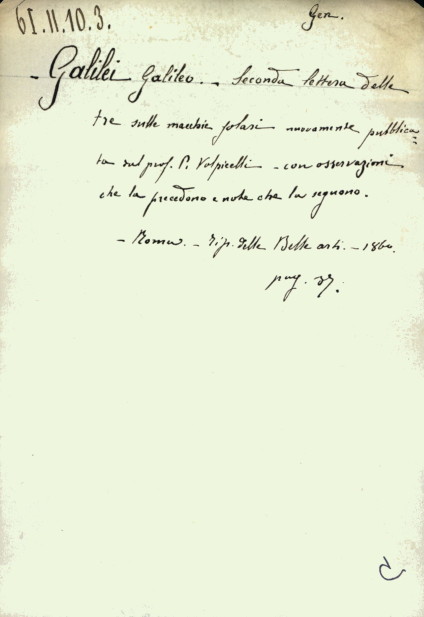 61.11.10.3.
Gen.
- Galilei Galileo. - Seconda lettera delle
tre sulle macchie solari nuovamente pubblica=
ta dal prof. P. Volpicelli - con osservazioni
che la precedono e note che la seguono.
- Roma. - Tip. delle Belle arti. - 1860.
pag.